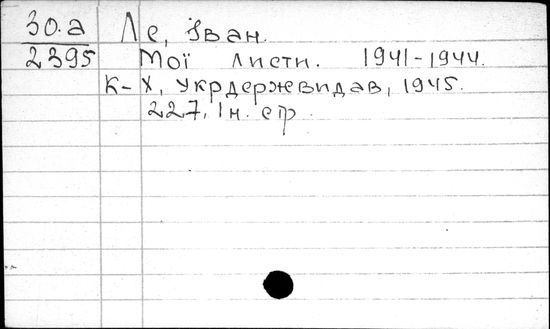 30.а Ле, Іван.
2395 Мої листи. 1941-1944.
К-Х, Укрдержвидав, 1945.
227, 1н. стр.